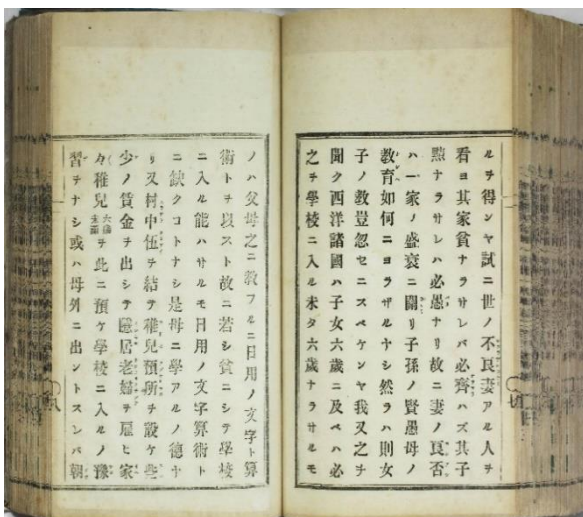 ルヲ得ンヤ試ニ世ノ不良妻アル人ヲ
看ヨ其家貧ナラサレバ必齊ハズ其子
黠ナラサレハ必愚ナリ故ニ妻ノ良否
ハ一家ノ盛衰ニ關リ子孫ノ賢愚母ノ
教育如何ニヨラザルヤシ然ラハ則女
子ノ教豈忽セニスベケンヤ我又之ヲ
聞ク西洋諸國ハ子女六歳ニ及ベハ必
之ヲ學校ニ入ル未タ六歳ナラサルモ
ノハ父母之ニ教フルニ日用ノ文字ト算
術トヲ以スト故ニ若シ貧ニシテ學校
ニ入ル能ハサルモ日用ノ文字算術ト
ニ缺クコトナシ是母ニ學アルノ德ナ
リ又村中伍ヲ結ヲ稚兒預所ヲ設ケ些
少ノ賃金ヲ出シテ隱居老婦ヲ雇ヒ家
々稚兒ヲ此ニ預ケ學校ニ入ルノ豫
習ヲナシ或ハ母外ニ出ントスレバ朝